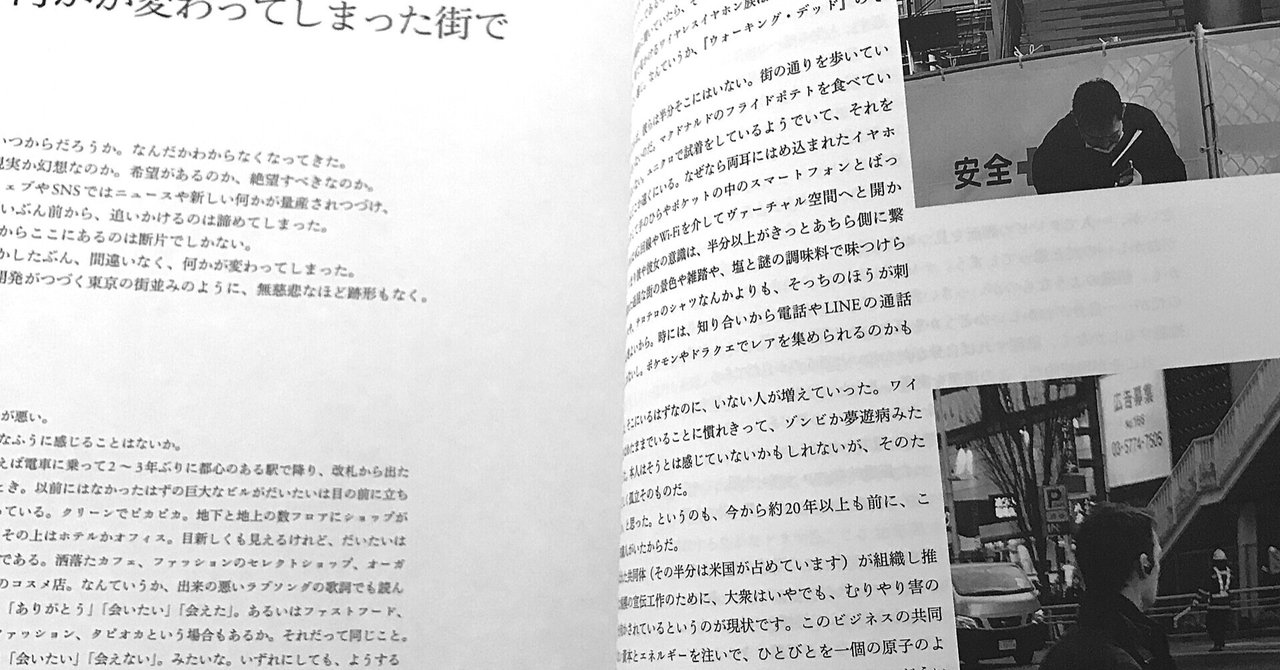 何かが変わってしまった街で
いつからだろうか。なんだかわからなくなってきた。
現実か幻想なのか。希望があるのか、絶望すべきなのか。
ウェブやSNSではニュースや新しい何かが量産されつづけ、
いぶん前から、追いかけるのは諦めてしまった。
からここにあるのは断片でしかない。
かしたぶん、間違いなく、何かが変わってしまった。
開発がつづく東京の街並みのように、無慈悲なほど跡形もなく。
が悪い。
なふうに感じることはないか。
えば電車に乗って2〜3年ぶりに都心のある駅で降り、改札から出た
とき。以前にはなかったはずの巨大なビルがだいたいは目の前に立ち
っている。クリーンでピカピカ。地下と地上の数フロアにショップが
その上はホテルかオフィス。目新しくも見えるけれど、だいたいは
である。洒落たカフェ、ファッションのセレクトショップ、オーガ
のコスメ店。なんていうか、出来の悪いラブソングの歌詞でも読ん
「ありがとう」「会いたい」「会えた」。あるいはファストフード、
ファッション、タピオカという場合もあるか。それだって同じこと。
「会いたい」「会えない」。みたいな。いずれにしても、ようする
ワイヤレスイヤホン族は
なんていうか、『ウォーキング・デッド』の
彼らは半分そこにはいない。街の通りを歩いてい
マクドナルドのフライドポテトを食べてい
ユニクロで試着をしているようでいて、それを
遠くにいる。なぜなら両耳にはめ込まれたイヤホ
手のひらやポケットの中のスマートフォンとばっ
回線やWi-Fiを介してヴァーチャル空間へと開か
彼や彼女の意識は、半分以上がきっとあちら側に繋
な街の景色や雑踏や、塩と謎の調味料で味つけら
テロテロのシャツなんかよりも、そっちのほうが刺
ないから。時には、知り合いから電話やLINEの通話
ないし。ポケモンやドラクエでレアを集められるのかも
そこにいるはずなのに、いない人が増えていった。ワイ
たままでいることに慣れきって、ゾンビか夢遊病みた
本人はそうとは感じていないかもしれないが、そのた
く孤立そのものだ。
と思った。というのも、今から約20年以上も前に、こ
人がいたからだ。
た共同体（その半分は米国が占めています）が組織し推
の宣伝工作のために、大衆はいやでも、むりやり害の
かされているというのが現状です。このビジネスの共同
資本とエネルギーを注いで、ひとびとを一個の原子のよ
安全
広告募集
No.166
03-5774-7505
P